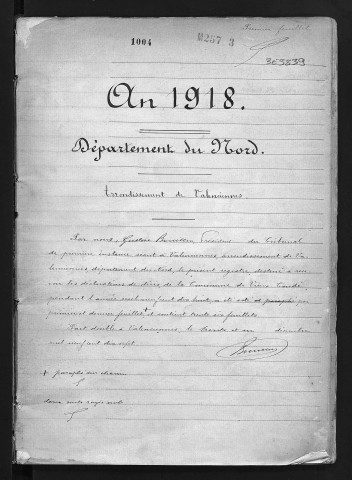 Premier feuillet
1004
M257 3
363839
An 1918.
Département du Nord.
Arrondissement de Valenciennes
Par nous, Gustave Président du Tribunal
de première instance séant à Valenciennes, arrondissement de Va-
lenciennes département du Nord, le présent registre destiné à ins-
crire les déclarations de décès de la Commune de Vieux Condé,
pendant l'année mil neuf cent dix huit, a été coté et paraphé par
premier et dernier feuillet + et contient trente six feuillets
Fait double à Valenciennes, le trente et un décembre
mil neuf cent dix sept
+ paraphé sur chacun